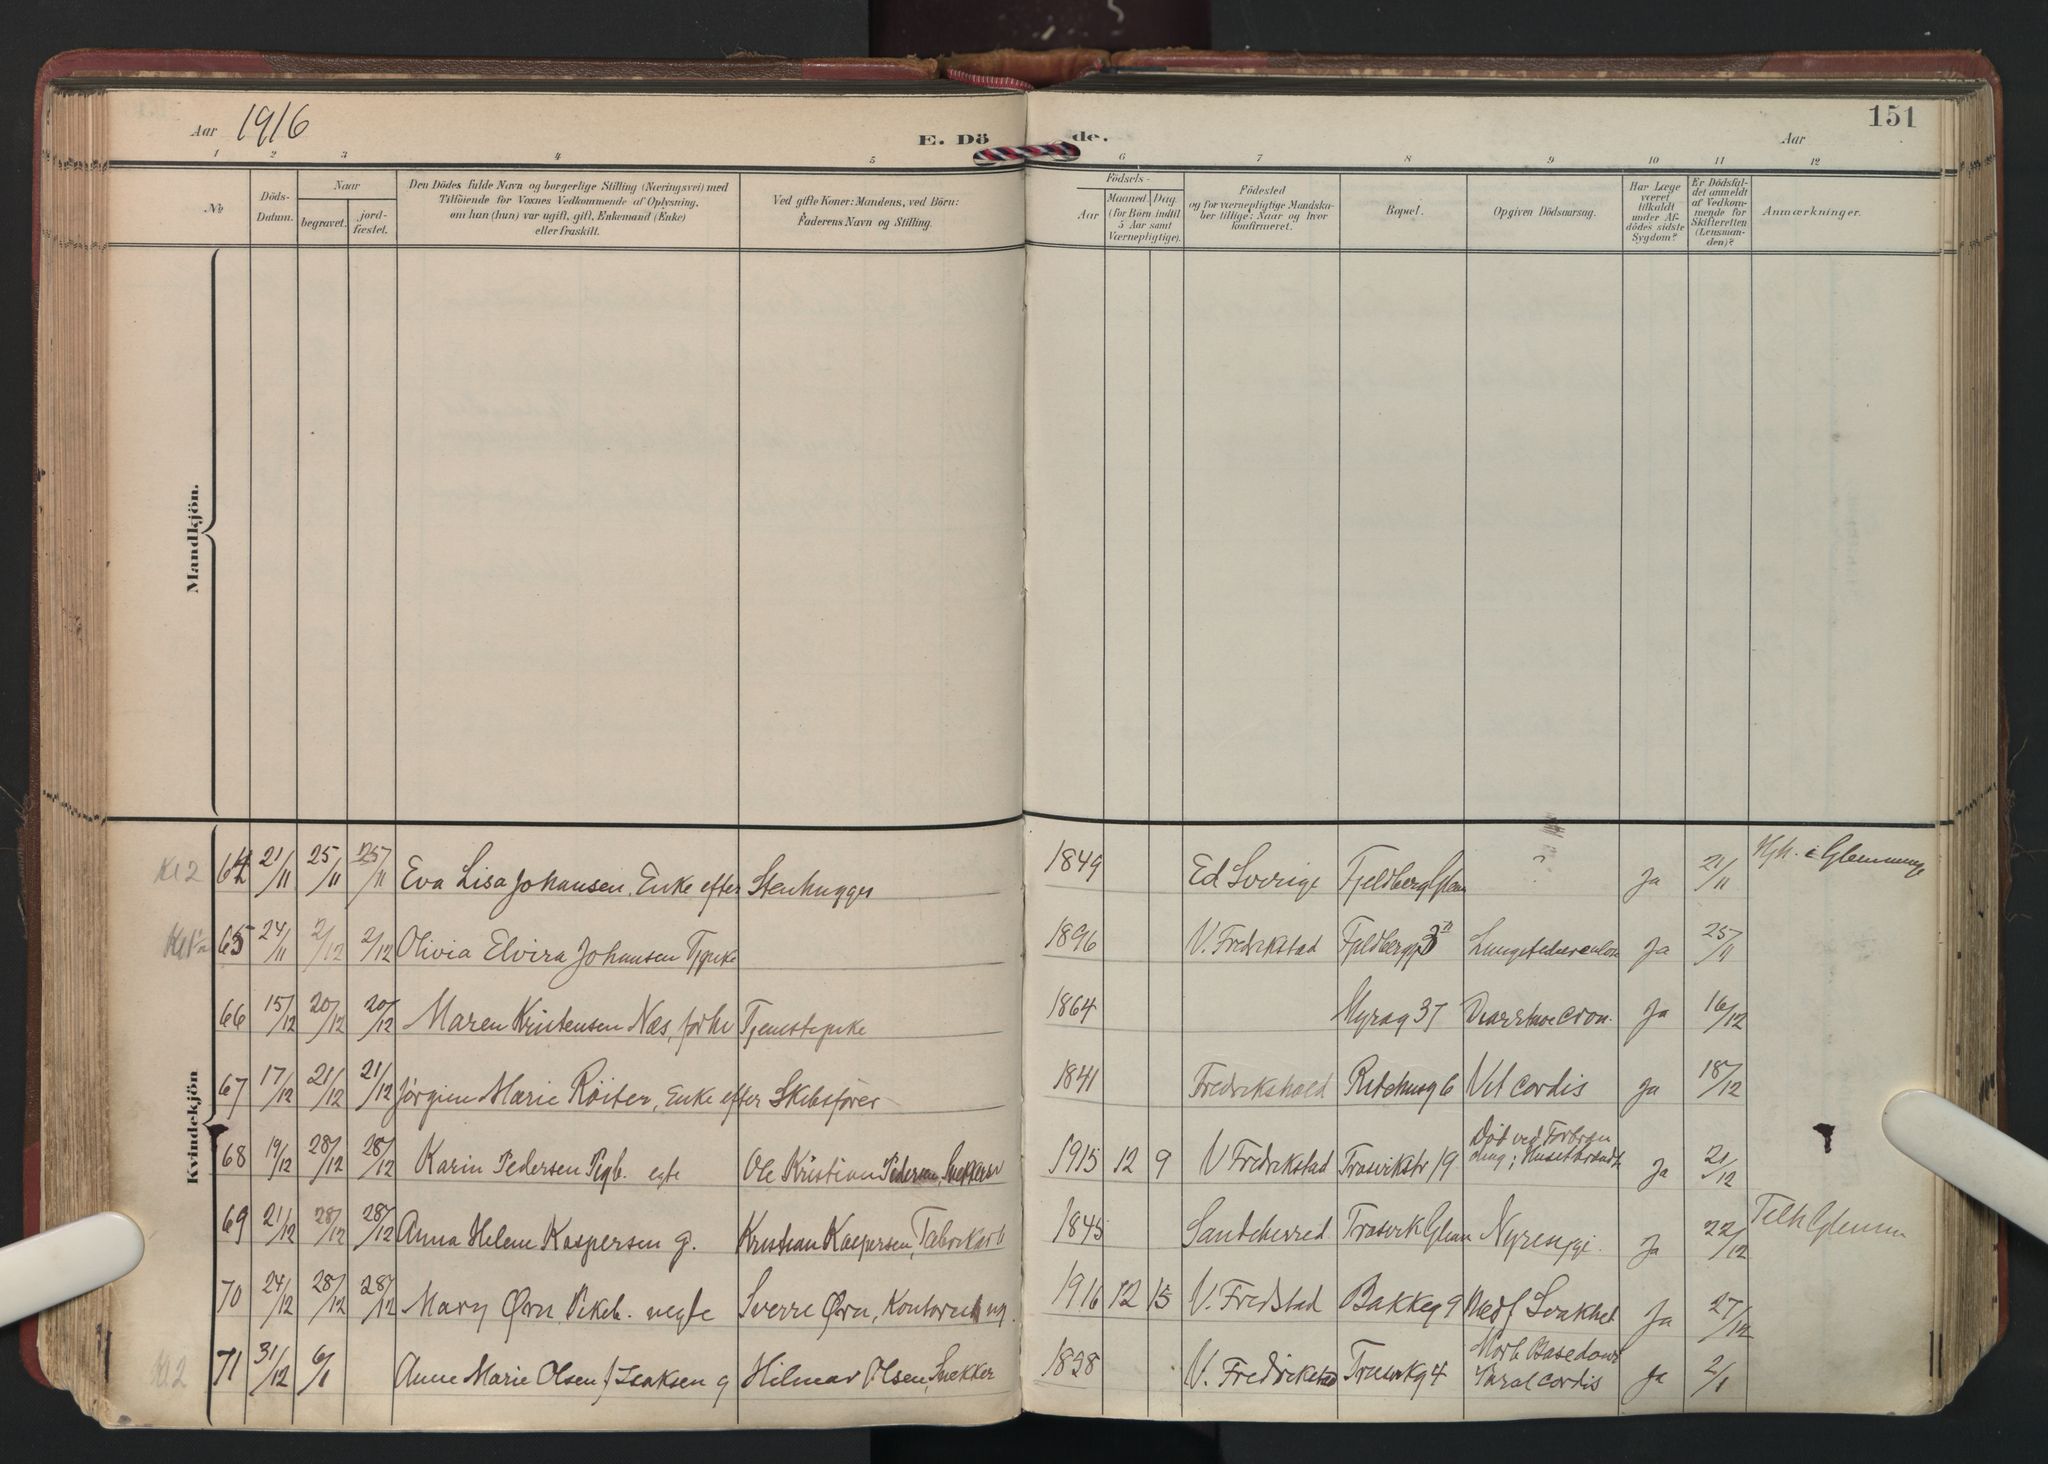 151
Aar 1916
E. Dö de.
Aar
1 2 3 4 5 6 7 8 9 10 11 12
No
Döds-
Datum.
Naar
begravet.
jord-
fæstet.
Den Dödes fulde Navn og borgerlige Stilling (Næringsvei) med
Tilföiende for Voxnes Vedkommende af Oplysning,
om han (hun) var ugift, gift, Enkemand (Enke)
eller fraskilt.
Ved gifte Koner: Mandens, ved Börn:
Faderens Navn og Stilling.
Födsels-
Aar
Maaned. Dag.
(for Börn indtil
5 Aar samt
Værnepligtige).
Födested
og for værnepligtige Mandska-
ber tillige: Naar og hvor
konfirmeret.
Bopæl.
Opgiven Dödsaarsag.
Har Læge
været
tilkaldt
under Af-
dödes sidste
Sygdom?
Er Dödsfal-
det anmeldt
af Vedkom-
mende for
Skifteretten
(Lensman-
den)?
Anmærkninger.
Mandkjön.
Kvindekjön
Kl 2 64 21/11 25/11 25/11 Eva Lisa Johansen, Enke efter Stenhugger 1849 Ed Sverige Fjeldberg Glem ? Ja 21/11 i Glemminge
65 24/11 2/12 2/12 Olivia Elvira Johansen Tjpike 1896 V. Fredrikstad Fjeldbergg 3 Lungetuberculose Ja 25/11
66 15/12 20/12 20/12 Maren Kristensen Næs, forhv Tjenestepike 1864 Myrag 37 Ja 16/12
67 17/12 21/12 21/12 Jørgine Marie Röiter, Enke efter Skibsfører 1841 Fredrikshald Ridehusg 6 Vit cordis Ja 18/12
68 19/12 28/12 28/12 Karin Pedersen Pigb. egte Ole Kristian Pedersen, Snekker 1915 12 9 V Fredrikstad Trosvikstr 19 Død ved Forbræn
ding; Huset brændt Ja 21/12
69 21/12 28/12 28/12 Anna Helene Kaspersen g. Kristian Kaspersen, Fabrikarb 1845 Trosvik Glem Ja 22/12 Glemm
70 24/12 28/12 28/12 Mary Ørn Pikeb. uegte Sverre Ørn, Kontorist ug. 1916 12 15 V. Fredstad Bakkeg 9 Medf Svakhet Ja 27/12
Kl 2 71 31/12 6/1 Anne Marie Olsen f Isaksen g Hilmar Olsen, Snekker 1898 V. Fredrikstad Trosvikg 4 Morb Basedowi
Paral cordis Ja 2/1